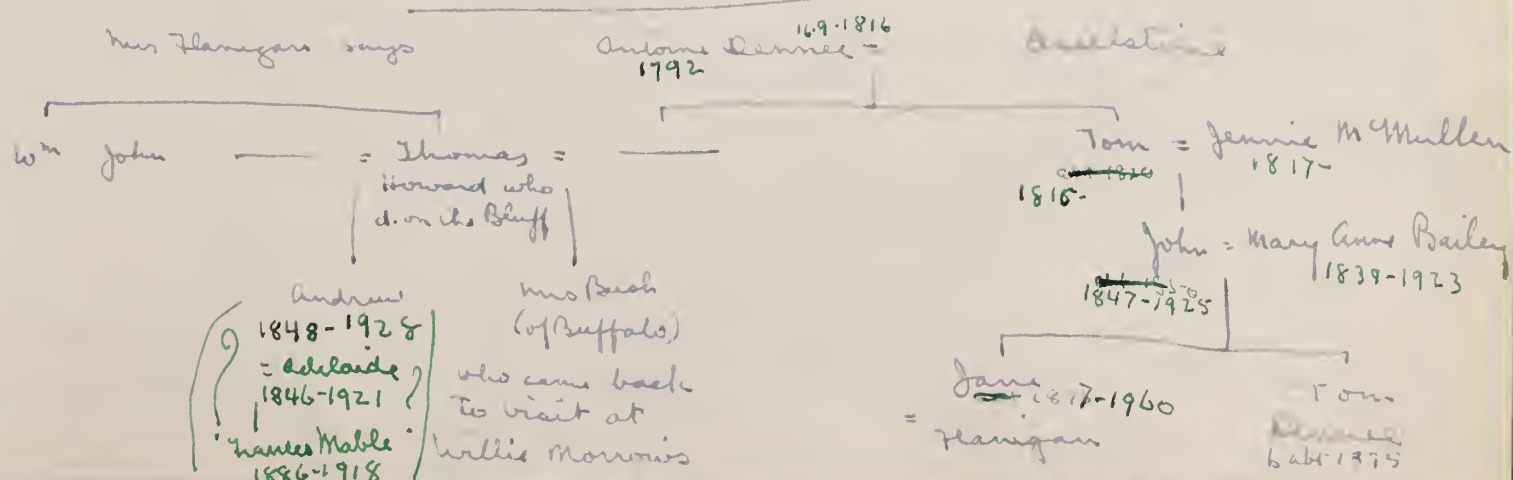 Mrs Flanigan says
16.9.1816
Antoine Dennee =
1792
Wm John — = Thomas = —
Howard who
d. on the Bluff
Tom = Jennie McMullen
1817-
John = Mary Anne Bailey
1847-1925
Andrew
1848-1928
= Adelaide
1846-1921
"Frances Mable"
1886-1918
Mrs Bush
(of Buffalo)
who came back
to visit at
Willie Morrow's
Jane
-1960
= Flanigan
Tom
Dennee